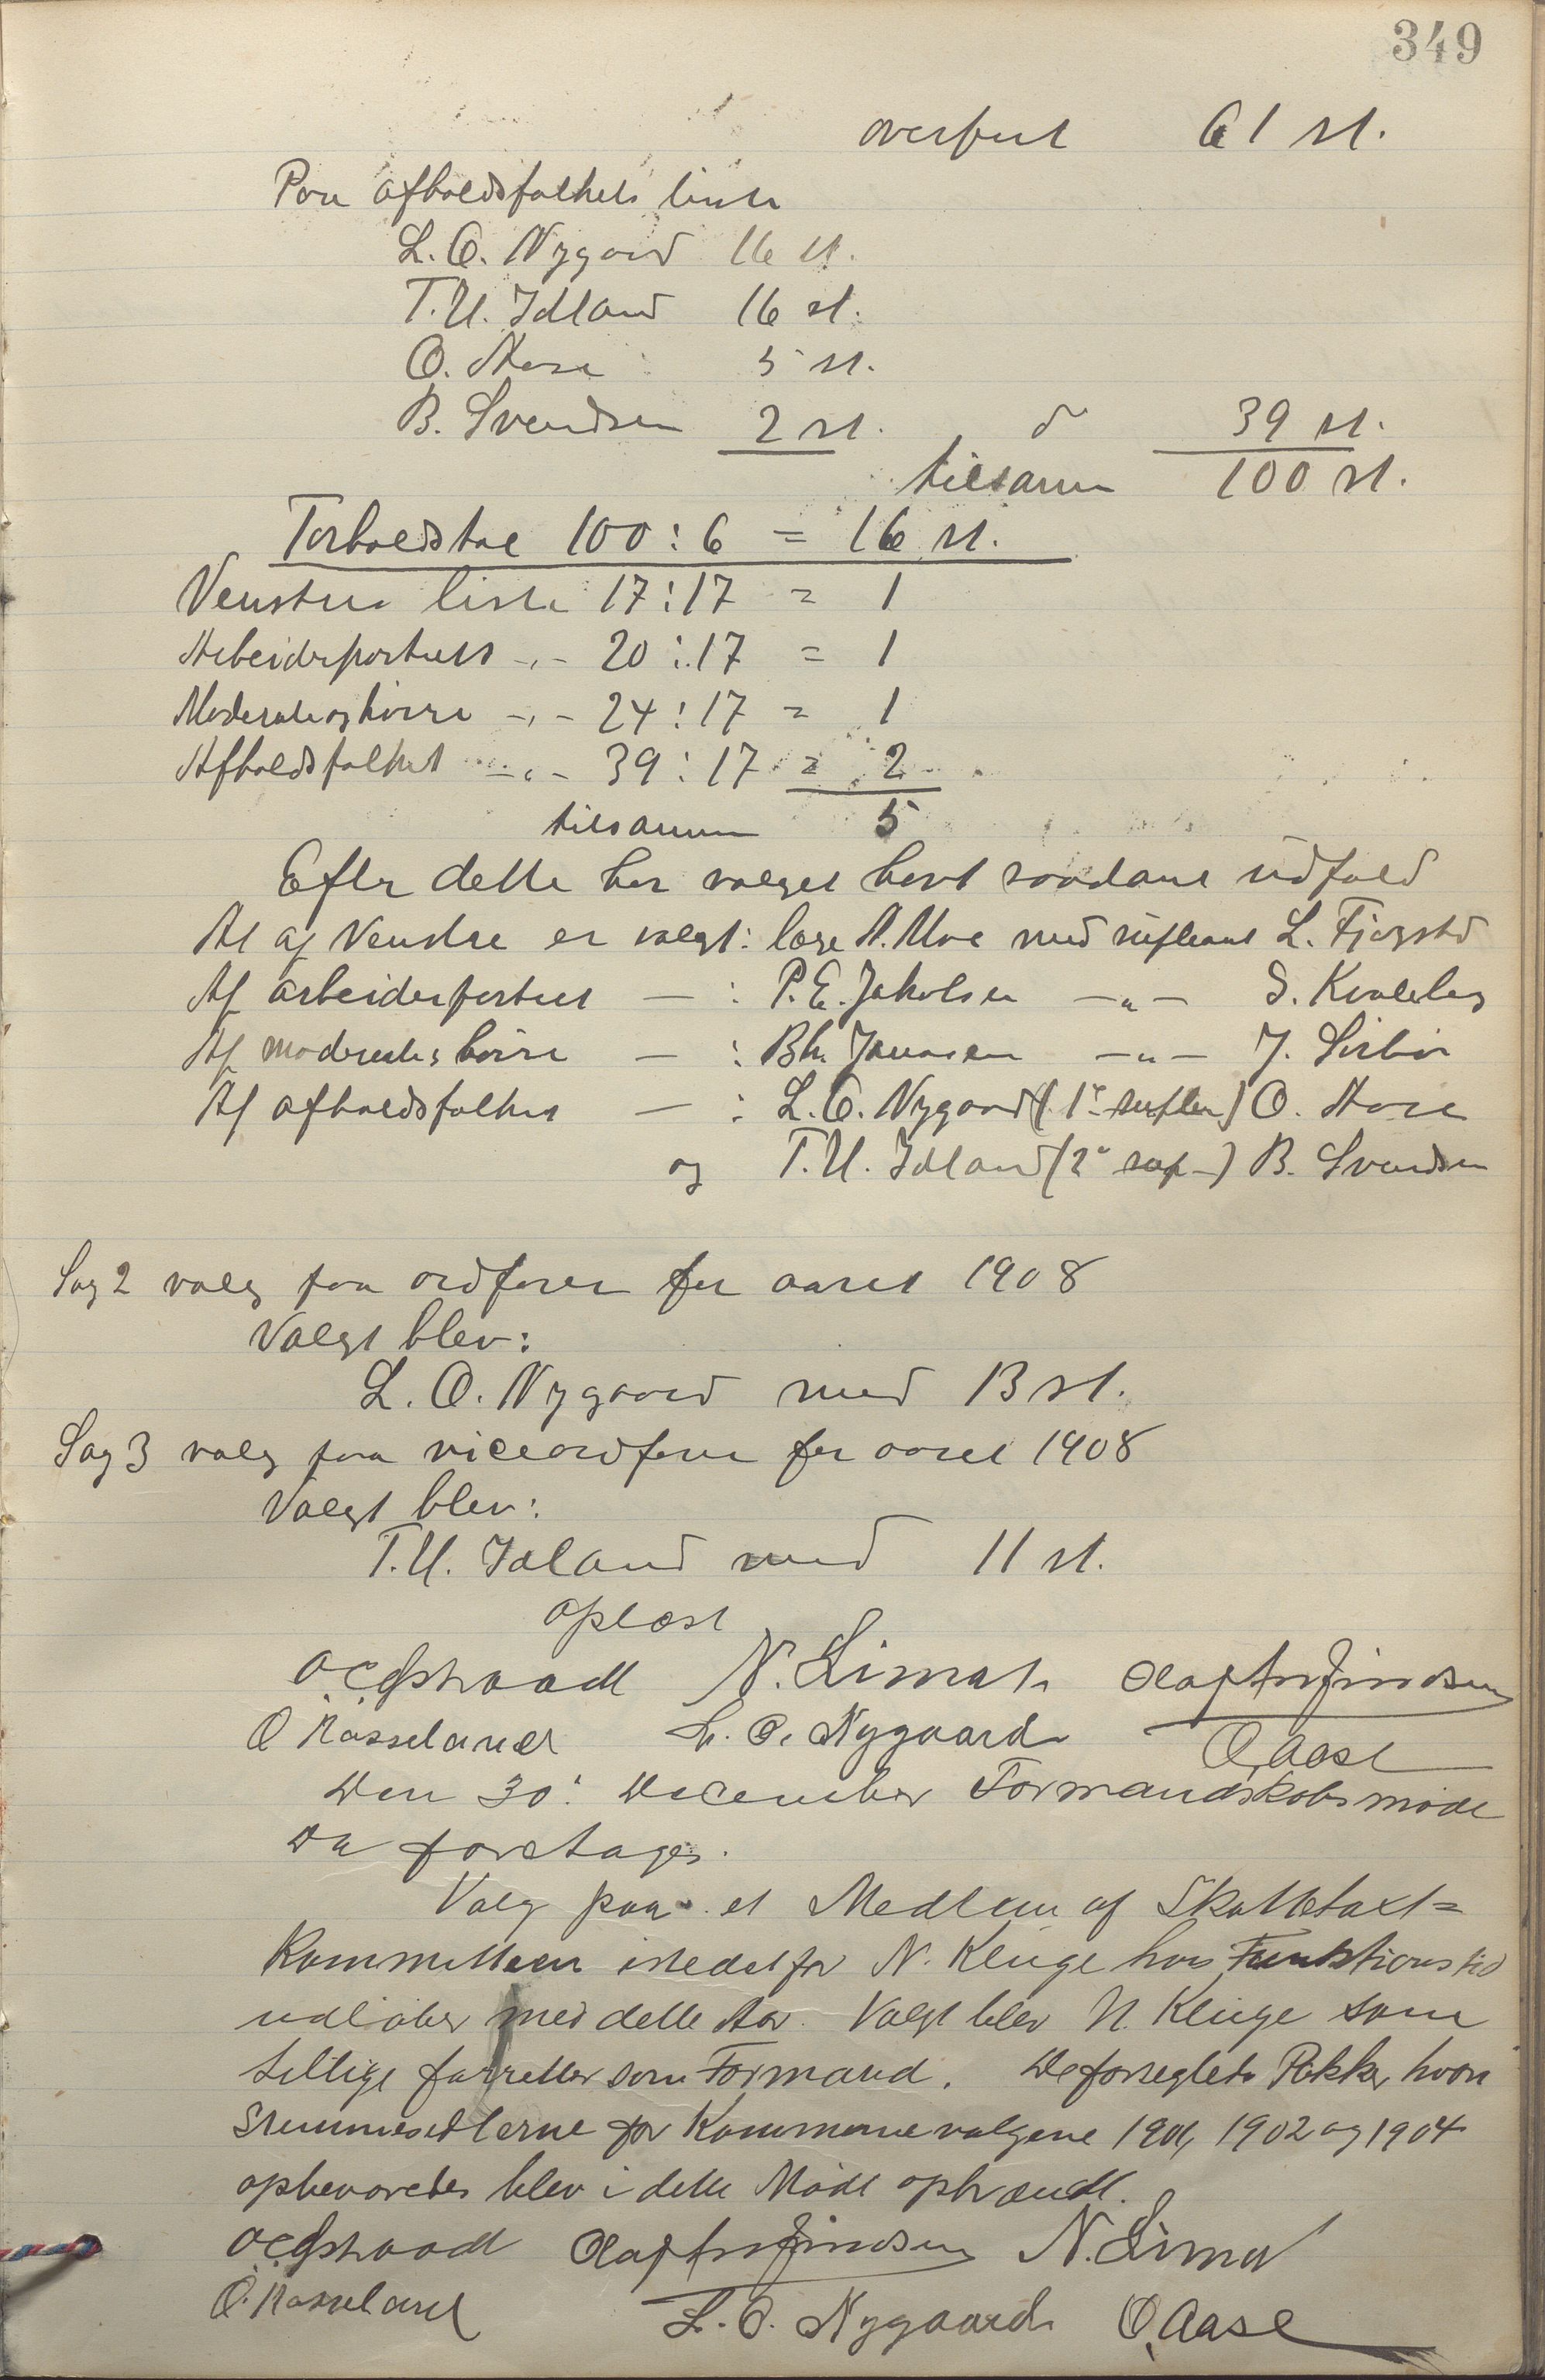 349
overført 61 st.
Paa afholdsfolkets liste
L. O. Nygaard 16 st.
T. U. Idland 16 st.
O. Aase 5 st.
B. Svendsen 2 st. 39 st.
tilsamm 100 st.
Forholdstal 100 : 6 = 16 st.
Venstres liste 17 : 17 = 1
Arbeiderpartiets -„- 20 : 17 = 1
Moderate og høire -„- 24 : 17 = 1
Afholdsfolket -„- 39 : 17 = 2
tilsammen 5
Efter dette har valget havt saadant udfald
At af Venstre er valgt: læge A. Moe med supleant L. Fjogstad
Af arbeiderpartiet — : P. E. Jakobsen -„- S. Kvaleberg
Af moderate & høire — : Bh. Jonassen -„- J. Sirbø
Af afholdsfolket — : L. O. Nygaard (1ste suplen) O. Aase
og T. U. Idland (2den sup-) B. Svendsen
Sag 2 valg paa ordfører for aaret 1908
Valgt blev:
L. O. Nygaard med 13 st.
Sag 3 valg paa viceordfører for aaret 1908
Valgt blev:
T. U. Idland med 11 st.
oplæst
N. Lima
O Rasseland L. O. Nygaard O, Aase
Den 30. December Formandskabsmøde
Da foretages.
Valg paa et Medlem af Skattetaxt=
kommitteen istedetfor N. Kluge hvis Funktionstid
udløber med dette Aar. Valgt blev N. Kluge som
tillige forretter som Formand. De forseglede Pakker hvori
Stemmesedlerne for Kommunevalgene 1901, 1902 og 1904
opbevaredes blev i dette Møde opbrændt.
N. Lima
O. Rasseland L. O. Nygaard O, Aase